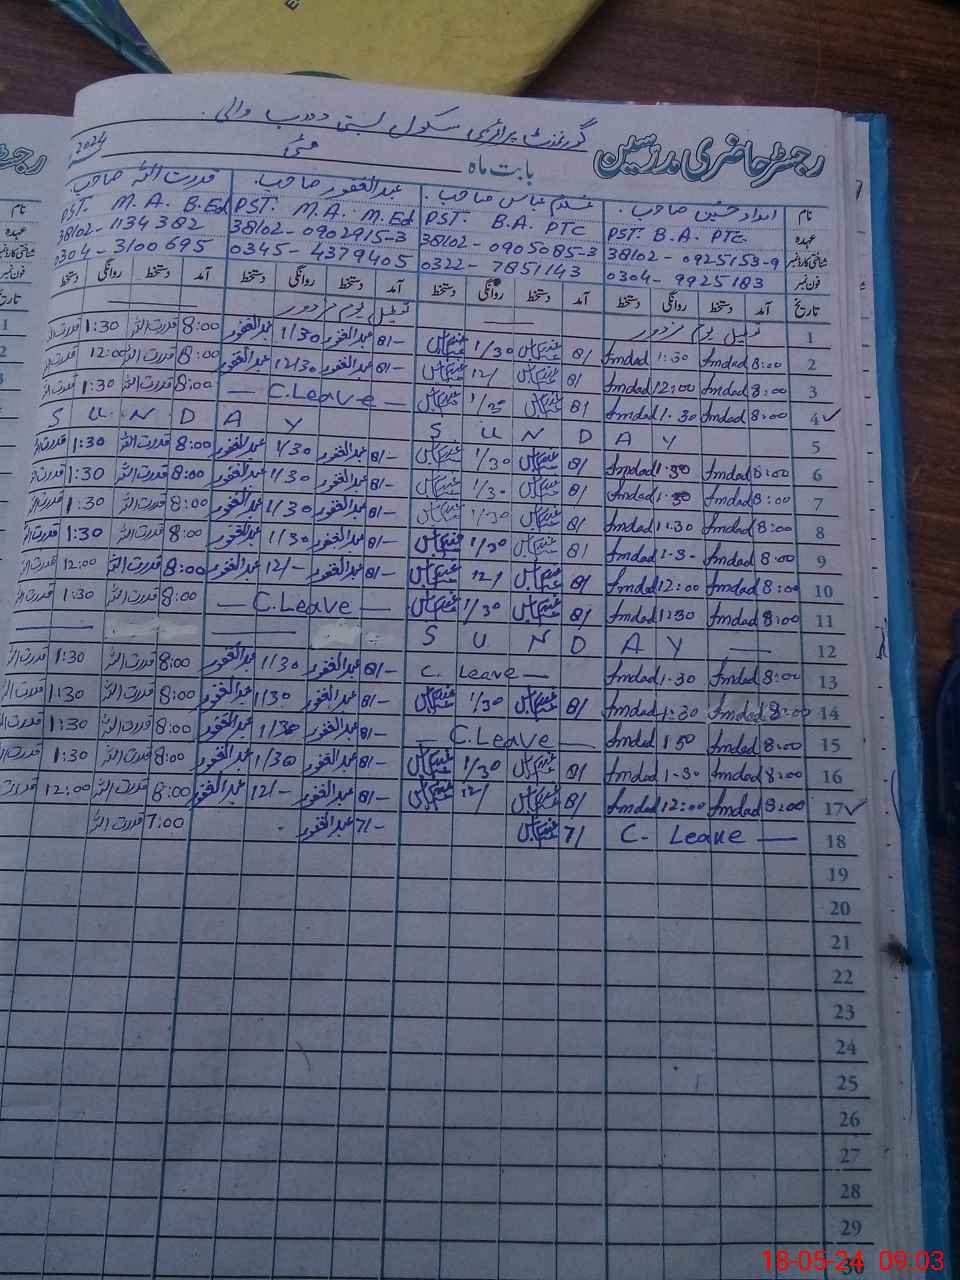 گورنمنٹ پرائمری سکول بستی درب والی
رجسٹر حاضری مدرسین بابت ماہ مئی 2024
نام امداد حسین صاحب غلام عباس صاحب عبدالغفور صاحب قدرت اللہ صاحب
عہدہ PST. B.A. PTC PST. B.A. PTC PST. M.A. M.Ed PST. M.A. B.Ed
شناختی کارڈ نمبر 38102-0925153-9 38102-0905085-3 38102-0902915-3 38102-1134382
فون نمبر 0304-9925183 0322-7851143 0345-4379405 0304-3100695
تاریخ آمد دستخط روانگی دستخط آمد دستخط روانگی دستخط آمد دستخط روانگی دستخط آمد دستخط روانگی دستخط
1 تعطیل یوم مزدور — تعطیل یوم مزدور —
2 8:00 Amdad 1:30 Amdad 8/ غلام عباس 1/30 غلام عباس 8/- عبدالغفور 1/30 عبدالغفور 8:00 قدرت اللہ 1:30 قدرت اللہ
3 8:00 Amdad 12:00 Amdad 8/ غلام عباس 12/ غلام عباس 8/- عبدالغفور 12/30 عبدالغفور 8:00 قدرت اللہ 12:00 قدرت اللہ
4 ✓ 8:00 Amdad 1.30 Amdad 8/ غلام عباس 1/30 غلام عباس — C.Leave — 8:00 قدرت اللہ 1:30 قدرت اللہ
5 S U N D A Y S U N D A Y
6 8:00 Amdad 1:30 Amdad 8/ غلام عباس 1/30 غلام عباس 8/- عبدالغفور 1/30 عبدالغفور 8:00 قدرت اللہ 1:30 قدرت اللہ
7 8:00 Amdad 1.30 Amdad 8/ غلام عباس 1/30 غلام عباس 8/- عبدالغفور 1/30 عبدالغفور 8:00 قدرت اللہ 1:30 قدرت اللہ
8 8:00 Amdad 1:30 Amdad 8/ غلام عباس 1/30 غلام عباس 8/- عبدالغفور 1/30 عبدالغفور 8:00 قدرت اللہ 1:30 قدرت اللہ
9 8:00 Amdad 1.30 Amdad 8/ غلام عباس 1/30 غلام عباس 8/- عبدالغفور 1/30 عبدالغفور 8:00 قدرت اللہ 1:30 قدرت اللہ
10 8:00 Amdad 12:00 Amdad 8/ غلام عباس 12/ غلام عباس 8/- عبدالغفور 12/- عبدالغفور 8:00 قدرت اللہ 12:00 قدرت اللہ
11 8:00 Amdad 1:30 Amdad 8/ غلام عباس 1/30 غلام عباس — C.Leave — 8:00 قدرت اللہ 1:30 قدرت اللہ
12 S U N D A Y —
13 8:00 Amdad 1.30 Amdad C. Leave — 8/- عبدالغفور 1/30 عبدالغفور 8:00 قدرت اللہ 1:30 قدرت اللہ
14 8:00 Amdad 1:30 Amdad 8/ غلام عباس 1/30 غلام عباس 8/- عبدالغفور 1/30 عبدالغفور 8:00 قدرت اللہ 1:30 قدرت اللہ
15 8:00 Amdad 1 30 Amdad — C.Leave — 8/- عبدالغفور 1/30 عبدالغفور 8:00 قدرت اللہ 1:30 قدرت اللہ
16 8:00 Amdad 1.30 Amdad 8/ غلام عباس 1/30 غلام عباس 8/- عبدالغفور 1/30 عبدالغفور 8:00 قدرت اللہ 1:30 قدرت اللہ
17 ✓ 8:00 Amdad 12:00 Amdad 8/ غلام عباس 12/ غلام عباس 8/- عبدالغفور 12/- عبدالغفور 8:00 قدرت اللہ 12:00 قدرت اللہ
18 C. Leave — 7/ غلام عباس 7/- عبدالغفور 7:00 قدرت اللہ
19
20
21
22
23
24
25
26
27
28
29
30
18-05-24 09:03